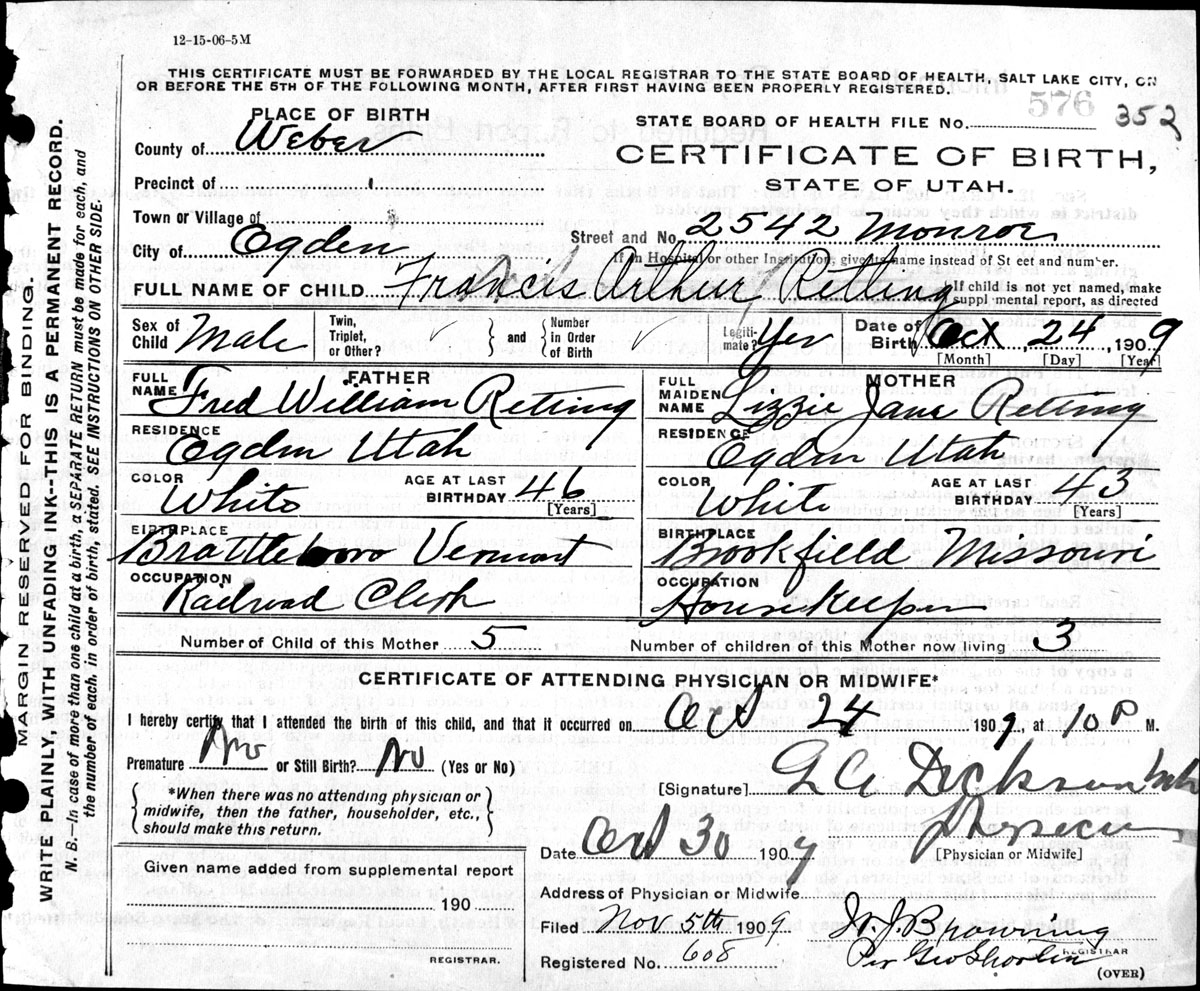 12-15-06-5M
THIS CERTIFICATE MUST BE FORWARDED BY THE LOCAL REGISTRAR TO THE STATE BOARD OF HEALTH, SALT LAKE CITY, ON
OR BEFORE THE 5TH OF THE FOLLOWING MONTH, AFTER FIRST HAVING BEEN PROPERLY REGISTERED.
576 352
PLACE OF BIRTH
STATE BOARD OF HEALTH FILE No.
County of Weber
CERTIFICATE OF BIRTH,
STATE OF UTAH.
Precinct of
Town or Village of
City of Ogden
Street and No. 2542 Monroe
If in Hospital or other Institution, give its name instead of St eet and num er.
FULL NAME OF CHILD Francis Arthur Retting
If child is not yet named, make
suppl mental report, as directed
Sex of Child Male
Twin, Triplet, or Other?
and
Number in Order of Birth
Legiti-mate? Yes
Date of Birth Oct 24 1909
[Month] [Day] [Year]
FATHER
FULL NAME Fred William Retting
RESIDENCE
Ogden Utah
COLOR White
AGE AT LAST BIRTHDAY 46
[Years]
BIRTHPLACE
Brattleboro Vermont
OCCUPATION
Railroad Clerk
MOTHER
FULL MAIDEN NAME Lizzie Jane Retting
RESIDENCE
Ogden Utah
COLOR White
AGE AT LAST BIRTHDAY 43
[Years]
BIRTHPLACE
Brookfield Missouri
OCCUPATION
Housekeeper
Number of Child of this Mother 5
Number of children of this Mother now living 3
CERTIFICATE OF ATTENDING PHYSICIAN OR MIDWIFE*
I hereby certify that I attended the birth of this child, and that it occurred on Oct 24 1909, at 10 P M.
Premature No or Still Birth? No (Yes or No)
*When there was no attending physician or
midwife, then the father, householder, etc.,
should make this return.
[Signature] Dickson
Physician
[Physician or Midwife]
Date Oct 30 1909
Given name added from supplemental report
190
REGISTRAR.
Address of Physician or Midwife
Filed Nov 5th 1909.
Registered No. 608
W. J. Browning
REGISTRAR
Per Geo
(OVER)
MARGIN RESERVED FOR BINDING.
WRITE PLAINLY, WITH UNFADING INK--THIS IS A PERMANENT RECORD.
N. B.—In case of more than one child at a birth, a SEPARATE RETURN must be made for each, and
the number of each, in order of birth, stated. SEE INSTRUCTIONS ON OTHER SIDE.